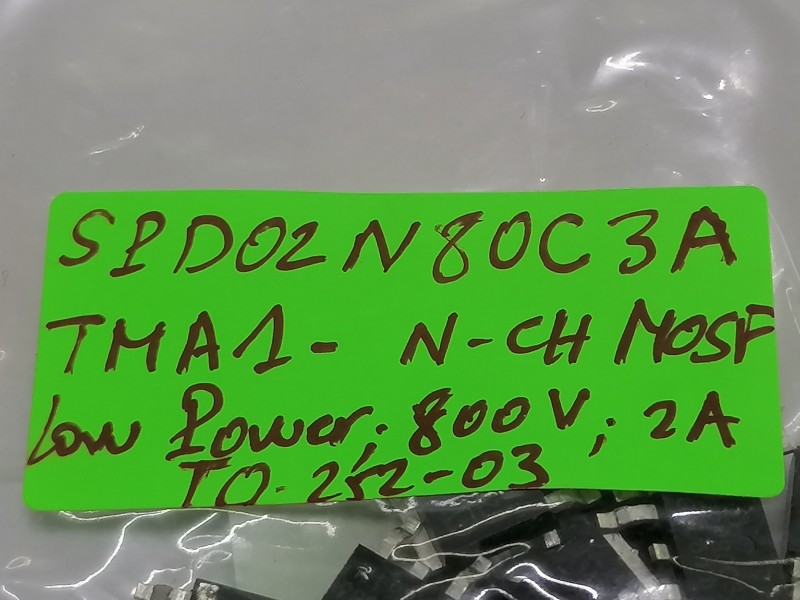 SPD02N80C3A
TMA1- N-CH MOSF
Low Power; 800V; 2A
TO-252-03